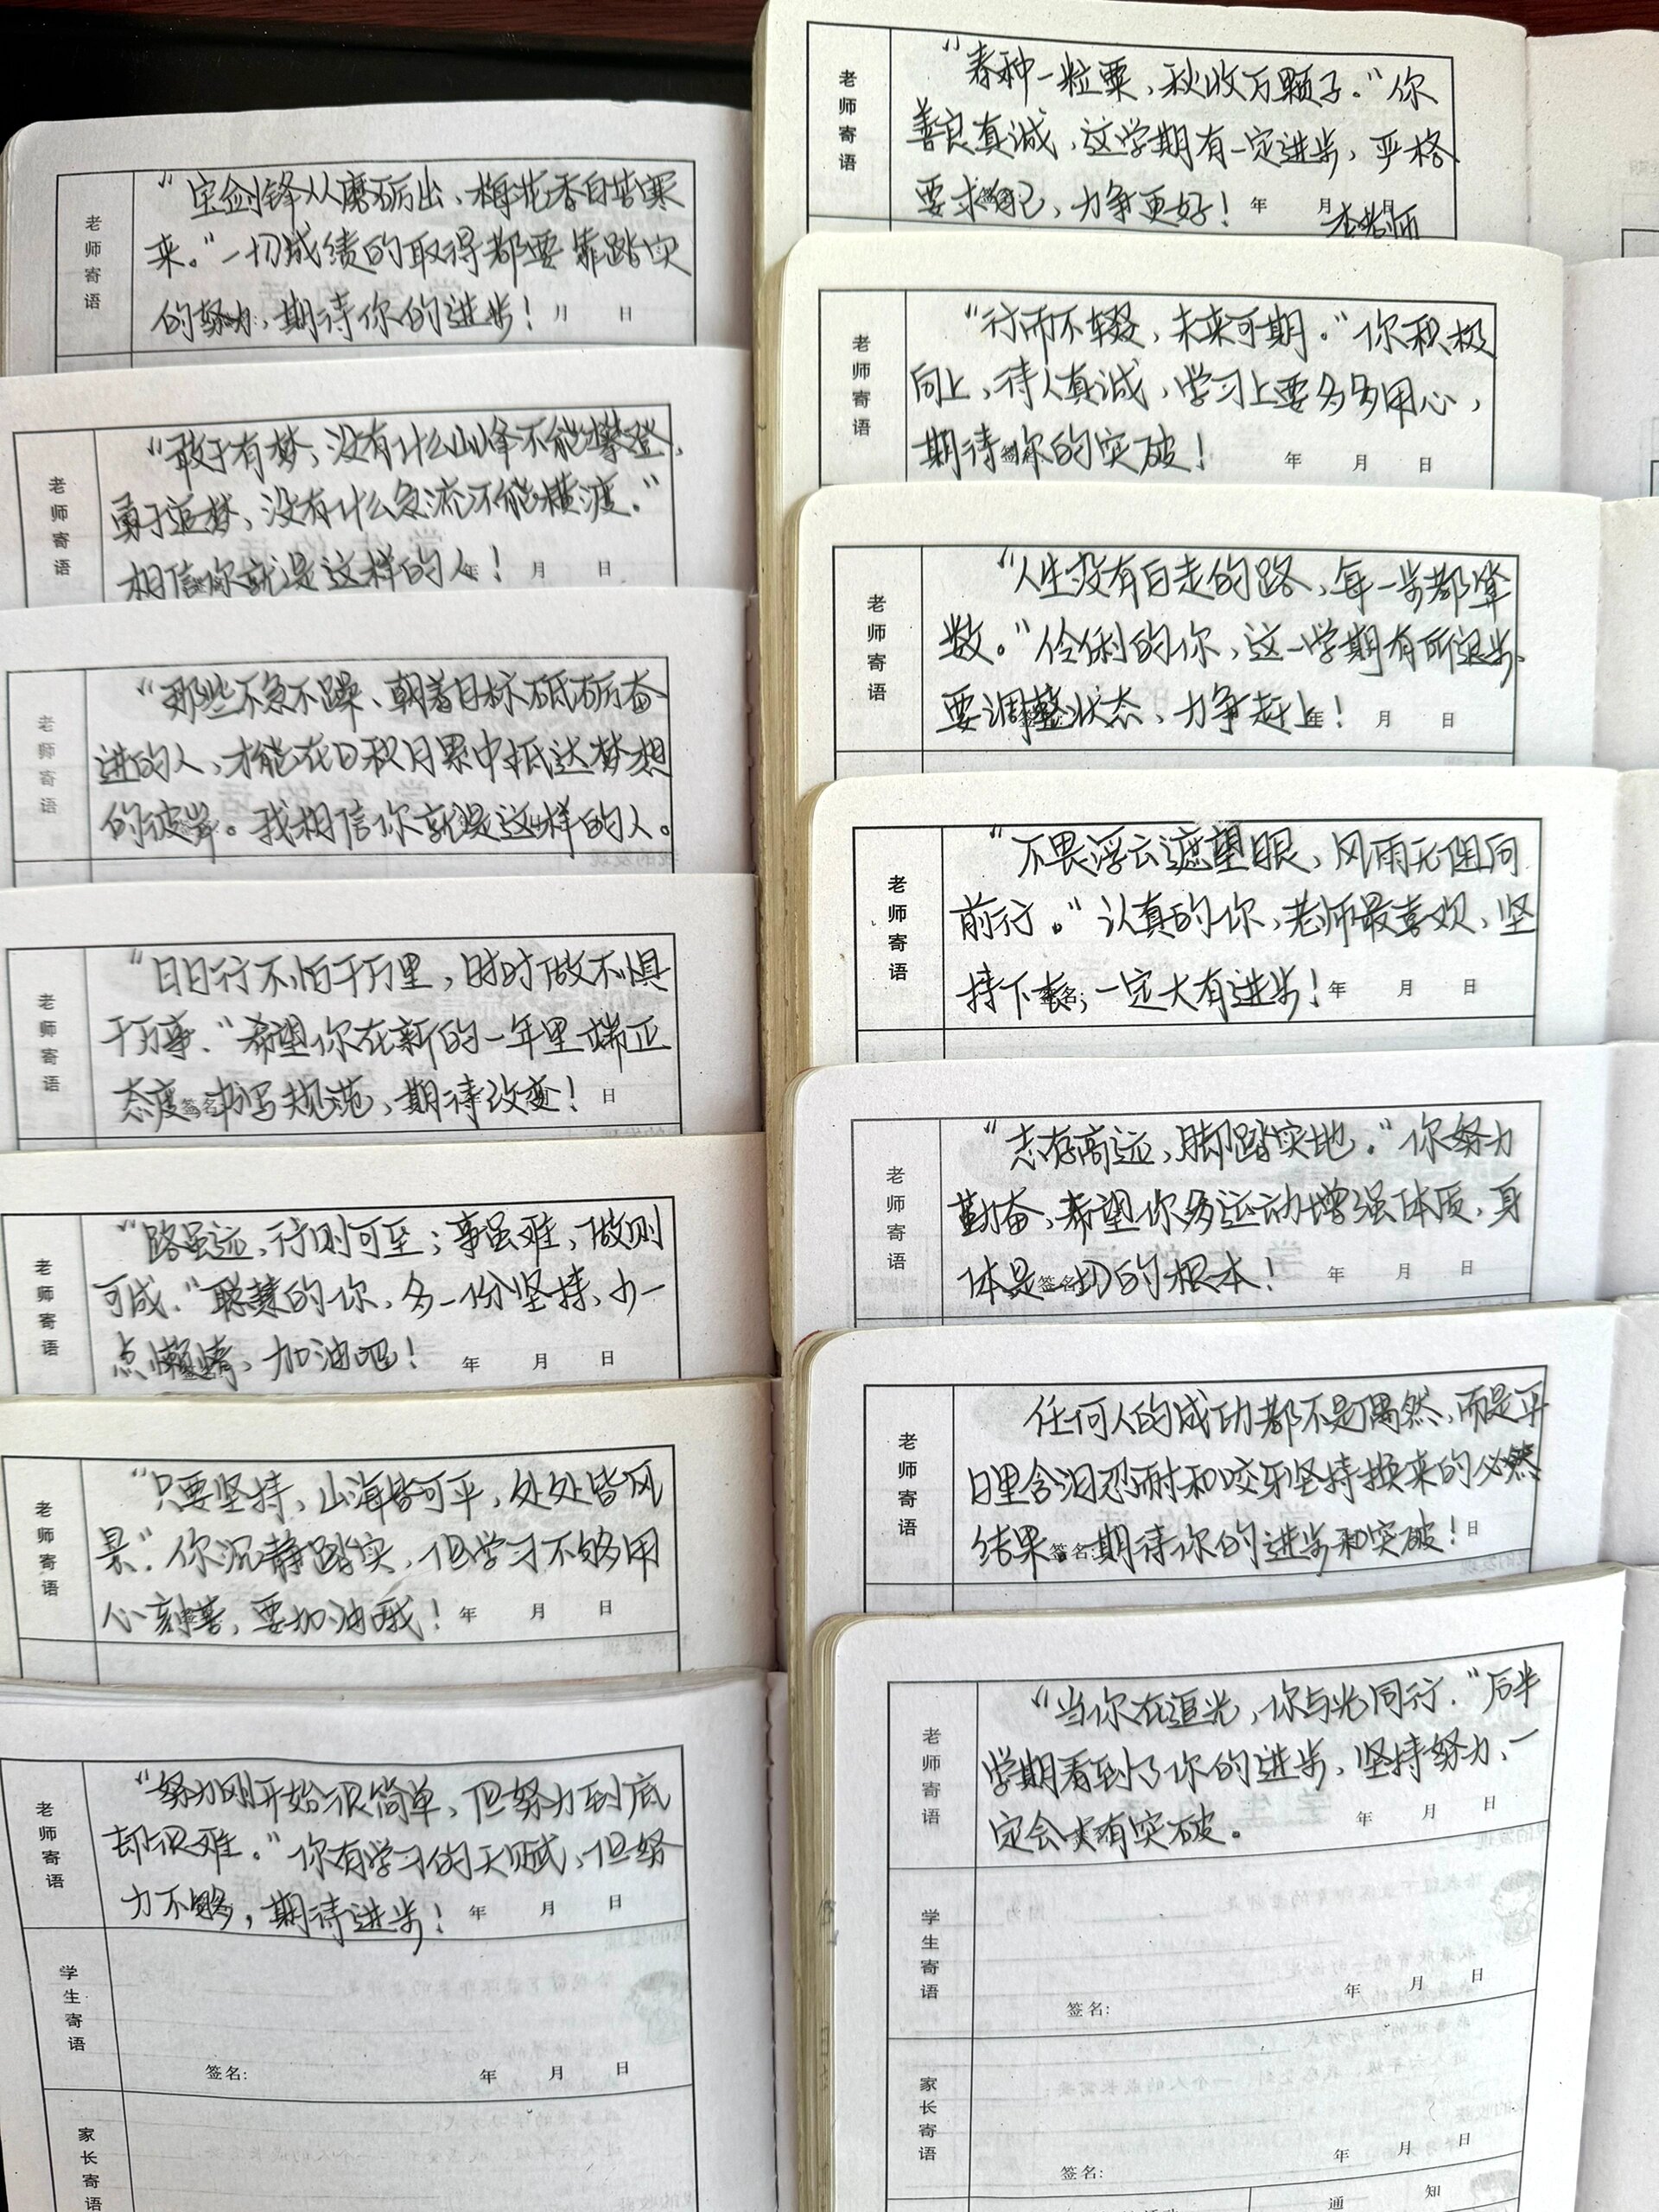 老师寄语
"宝剑锋从磨砺出、梅花香自苦寒
来。"一切成绩的取得都要靠踏实
的努力、期待你的进步！ 月 日
老师寄语
"敢于有梦，没有什么山峰不能攀登，
勇于追梦、没有什么急流不能横渡。"
相信你就是这样的人！ 月 日
老师寄语
"那些不急不躁、朝着目标砥砺奋
进的人、才能在日积月累中抵达梦想
的彼岸。我相信你就是这样的人。
老师寄语
"日日行不怕千万里，时时做不惧
千万事."希望你在新的一年里端正
态度、书写规范，期待改变！ 日
签名
老师寄语
"路虽远、行则可至；事虽难、做则
可成."聪慧的你、多一份坚持、少一
点懒惰、加油吧！ 年 月 日
老师寄语
"只要坚持、山海皆可平，处处皆风
景."你沉静踏实，但学习不够用
心刻苦，要加油哦！ 年 月 日
老师寄语
"努力刚开始很简单、但努力到底
却很难。"你有学习的天赋、但努
力不够，期待进步！ 年 月 日
学生寄语
签名: 年 月 日
家长寄语
老师寄语
"春种一粒粟、秋收万颗子."你
善良真诚、这学期有一定进步，严格
要求自己、力争更好！ 年 月
李老师
老师寄语
"行而不辍，未来可期。"你积极
向上、待人真诚，学习上要多多用心，
期待你的突破！ 年 月 日
老师寄语
"人生没有白走的路、每一步都算
数。"伶俐的你、这一学期有所退步、
要调整状态、力争赶上！ 年 月 日
老师寄语
"不畏浮云遮望眼、风雨无阻向
前行。"认真的你、老师最喜欢、坚
持下去，一定大有进步！ 年 月 日
签名:
老师寄语
"志存高远，脚踏实地."你努力
勤奋、希望你多运动增强体质，身
体是一切的根本！ 年 月 日
签名
老师寄语
任何人的成功都不是偶然、而是平
日里含泪忍耐和咬牙坚持换来的必然
结果。期待你的进步和突破！ 日
签名:
老师寄语
"当你在追光，你与光同行."后半
学期看到了你的进步、坚持努力、一
定会大有突破。 年 月 日
学生寄语
签名: 年 月 日
家长寄语
签名: 年 月 日
通 知